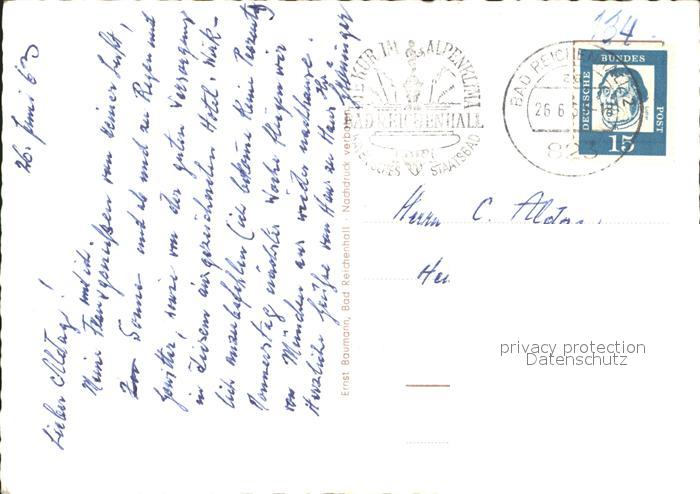 26. Juni 63
Lieber Aldag!
Meine Frau und ich
genießen von reiner Luft,
Sonne und ab und zu Regen mit
Gewitter, sowie von der guten Versorgung
in diesem ausgezeichneten Hotel. Wirk-
lich anzubefehlen (ich bekomme keine Prozente)
Donnerstag nächster Woche fliegen wir
von München aus wieder nachhause.
Herzliche Grüße von Haus zu Haus Ihr
Ernst Baumann, Bad Reichenhall - Nachdruck verboten
134
KUR IM ALPENKLIMA
BAD REICHENHALL
STAATSBAD
BAD REICHENHALL
26.6.
823
DEUTSCHE BUNDESPOST
15
Herrn C. Aldag
privacy protection
Datenschutz